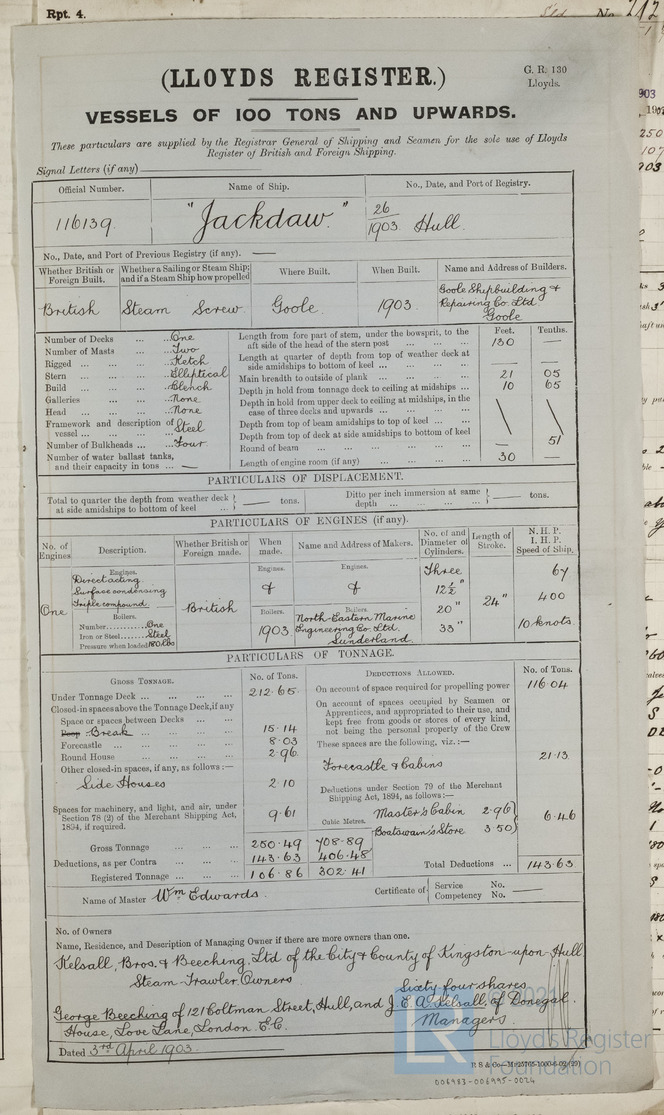 Rpt. 4.
No. 212
G. R. 130
Lloyds.
(LLOYDS REGISTER.)
VESSELS OF 100 TONS AND UPWARDS.
These particulars are supplied by the Registrar General of Shipping and Seamen for the sole use of Lloyds
Register of British and Foreign Shipping.
Signal Letters (if any)
Official Number. Name of Ship. No., Date, and Port of Registry.
116139. "Jackdaw." 26/1903 Hull.
No., Date, and Port of Previous Registry (if any). —
Whether British or Foreign Built. Whether a Sailing or Steam Ship; and if a Steam Ship how propelled Where Built. When Built. Name and Address of Builders.
British Steam Screw Goole 1903 Goole Shipbuilding & Repairing Co. Ltd Goole
Number of Decks ... ... One
Number of Masts ... ... Two
Rigged ... ... ... Ketch
Stern ... ... ... Elliptical
Build ... ... ... Clench
Galleries ... ... ... None
Head ... ... ... None
Framework and description of vessel ... ... ... Steel
Number of Bulkheads ... ... Four
Number of water ballast tanks, and their capacity in tons ... —
Feet. Tenths.
Length from fore part of stem, under the bowsprit, to the aft side of the head of the stern post ... ... ... 130 —
Length at quarter of depth from top of weather deck at side amidships to bottom of keel ... ... ... — —
Main breadth to outside of plank ... ... ... 21 05
Depth in hold from tonnage deck to ceiling at midships ... 10 65
Depth in hold from upper deck to ceiling at midships, in the case of three decks and upwards ... ... ...
Depth from top of beam amidships to top of keel ... ...
Depth from top of deck at side amidships to bottom of keel
Round of beam ... ... ... — 51
Length of engine room (if any) ... ... ... 30 —
PARTICULARS OF DISPLACEMENT.
Total to quarter the depth from weather deck at side amidships to bottom of keel ... — tons. Ditto per inch immersion at same depth ... ... ... — tons.
PARTICULARS OF ENGINES (if any).
No. of Engines Description. Whether British or Foreign made. When made. Name and Address of Makers. No. of and Diameter of Cylinders. Length of Stroke. N. H. P. I. H. P. Speed of Ship.
Engines. Engines. Engines.
Direct acting
Surface condensing
Triple compound
One British & & Three 12½" 20" 33" 24" 67 400 10 knots
Boilers. Boilers. Boilers.
Number ... One
Iron or Steel ... Steel
Pressure when loaded 180 lbs
1903 North-Eastern Marine Engineering Co. Ltd. Sunderland.
PARTICULARS OF TONNAGE.
GROSS TONNAGE. No. of Tons. DEDUCTIONS ALLOWED. No. of Tons.
Under Tonnage Deck ... ... ... ... 212·65
Closed-in spaces above the Tonnage Deck, if any
Space or spaces between Decks ... ...
Poop Break ... ... ... ... 15·14
Forecastle ... ... ... ... 8·03
Round House ... ... ... ... 2·96
Other closed-in spaces, if any, as follows:—
Side Houses 2 10
Spaces for machinery, and light, and air, under Section 78 (2) of the Merchant Shipping Act, 1894, if required. 9·61
Cubic Metres.
Gross Tonnage ... ... 250·49 708·89
Deductions, as per Contra ... ... ... 143·63 406·48
Registered Tonnage ... ... 106·86 302·41
On account of space required for propelling power 116·04
On account of spaces occupied by Seamen or Apprentices, and appropriated to their use, and kept free from goods or stores of every kind, not being the personal property of the Crew
These spaces are the following, viz.:—
Forecastle & Cabins 21·13
Deductions under Section 79 of the Merchant Shipping Act, 1894, as follows:—
Master's Cabin 2·96
Boatswain's Store 3·50
6·46
Total Deductions ... 143·63
Name of Master Wm Edwards. Certificate of Service No. Competency No. —
No. of Owners
Name, Residence, and Description of Managing Owner if there are more owners than one.
Kelsall, Bros. & Beeching, Ltd of the City & County of Kingston-upon-Hull
Steam Trawler Owners
Sixty four shares
George Beeching of 121 Coltman Street, Hull, and J. E. A. Kelsall, of Donegal
House, Love Lane, London E.C. Managers.
Dated 3rd April 1903.
R S & Co—
© 2021
LR
Lloyd's Register
Foundation
006983-006995-0024